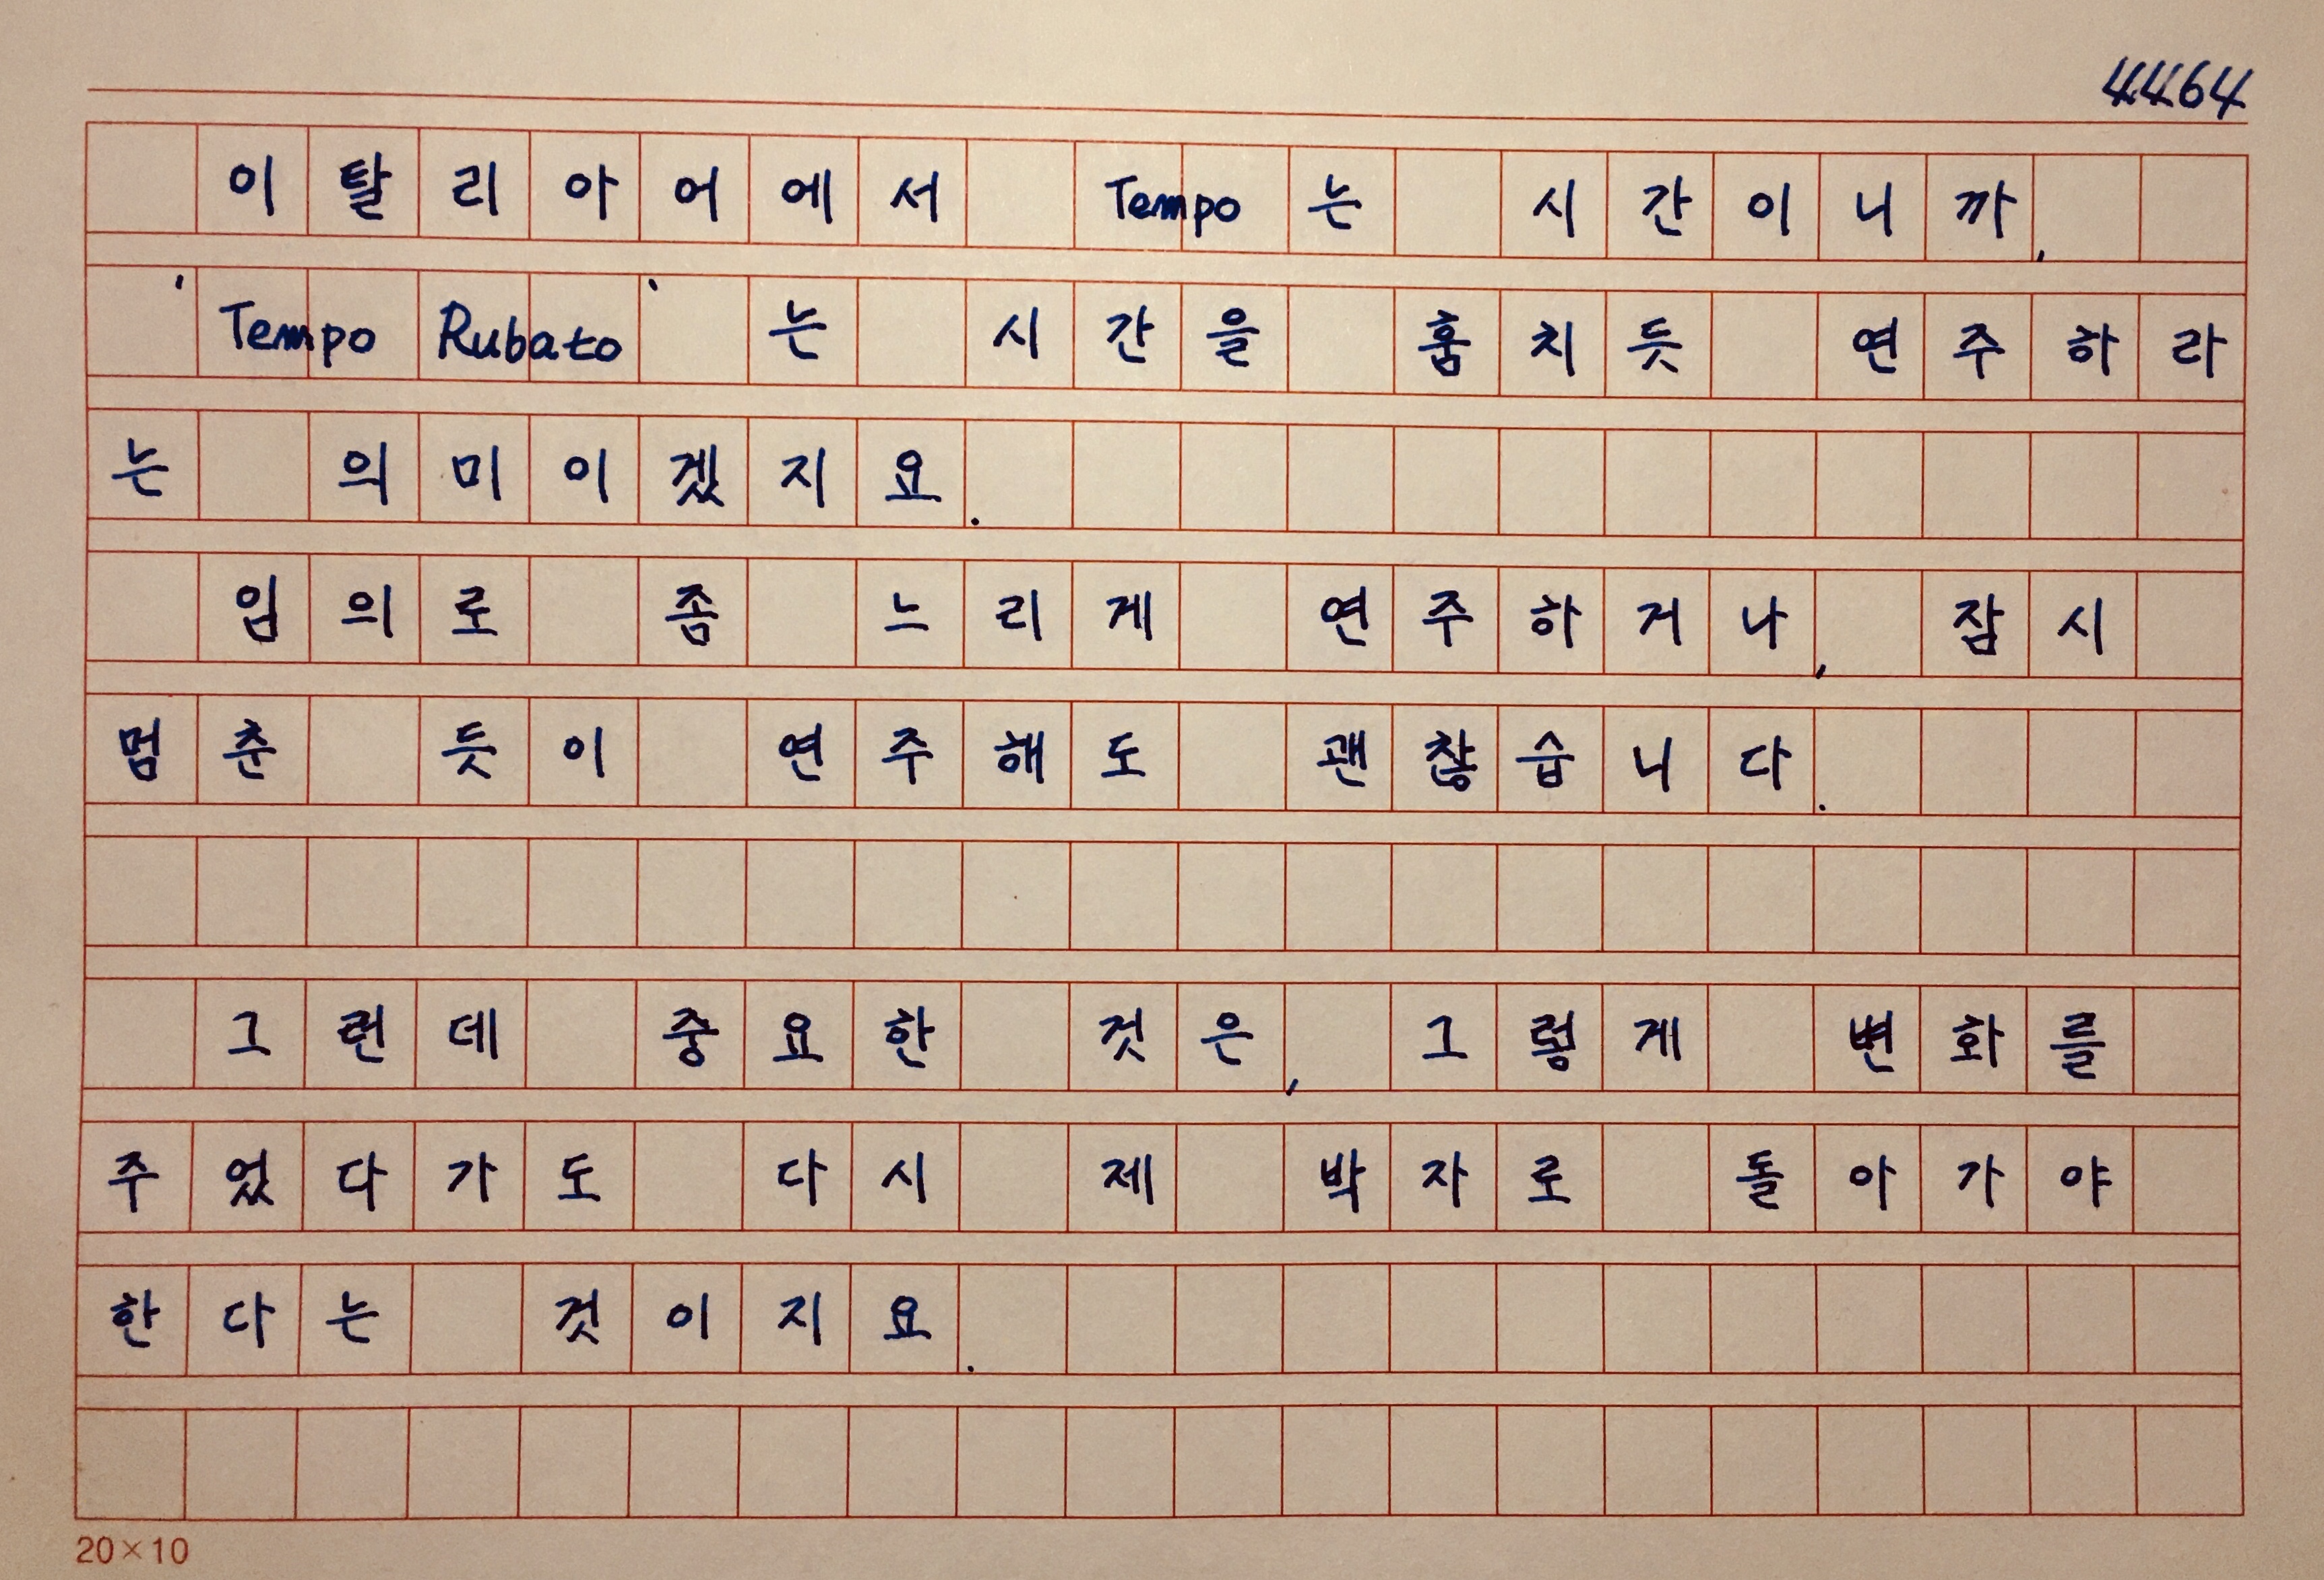 4464
이탈리아어에서 Tempo는 시간이니까,
'Tempo Rubato'는 시간을 훔치듯 연주하라
는 의미이겠지요.
임의로 좀 느리게 연주하거나, 잠시
멈춘 듯이 연주해도 괜찮습니다.
그런데 중요한 것은, 그렇게 변화를
주었다가도 다시 제 박자로 돌아가야
한다는 것이지요.
20×10